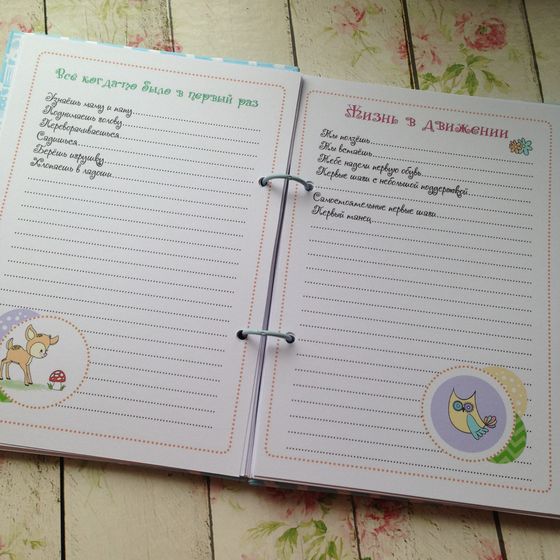 Всё когда-то было в первый раз
Узнаёшь маму и папу
Поднимаешь голову
Переворачиваешься
Садишься
Берёшь игрушку
Хлопаешь в ладоши
Жизнь в движении
Ты ползёшь
Ты встаёшь
Тебе надели первую обувь
Первые шаги с небольшой поддержкой
Самостоятельные первые шаги
Первый танец